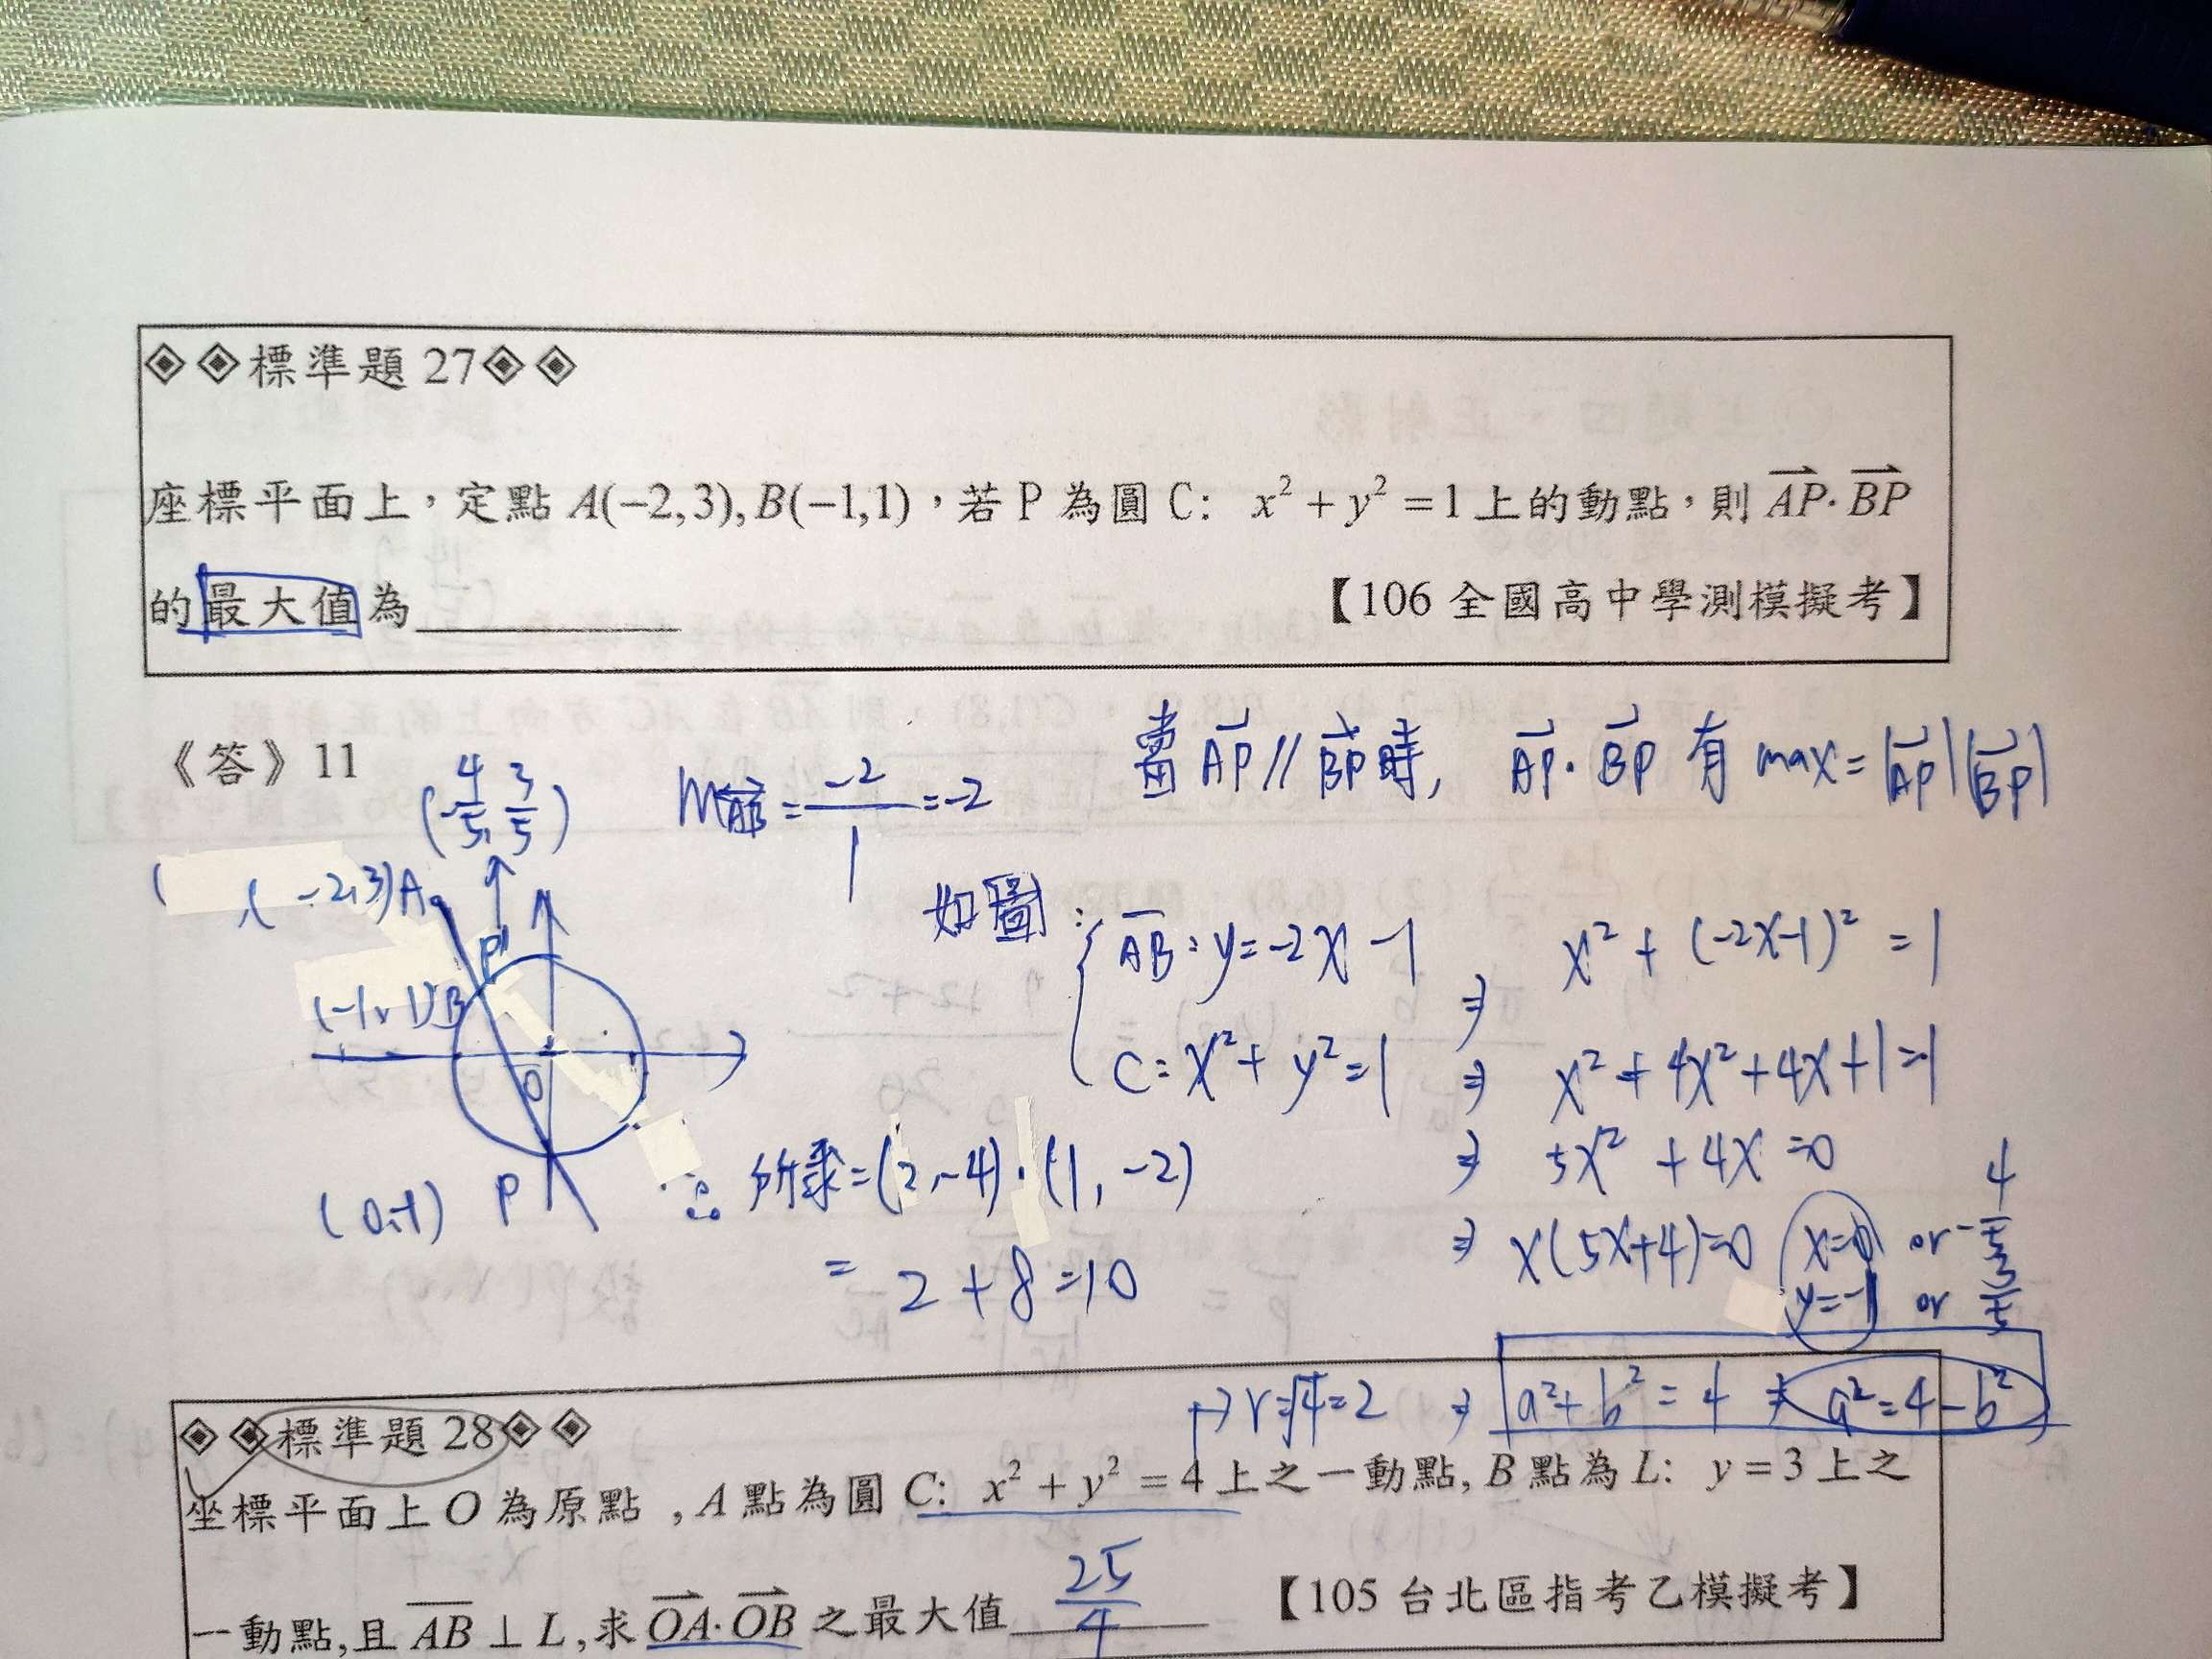 ◈◈標準題 27◈◈
座標平面上，定點 A(−2,3), B(−1,1)，若 P 為圓 C: x² + y² = 1 上的動點，則 AP⃗·BP⃗
的最大值為________ 【106 全國高中學測模擬考】
《答》11
當 AP⃗ // BP⃗ 時, AP⃗·BP⃗ 有 max = |AP⃗||BP⃗|
(-4/5, 3/5)
m_AB = -2/1 = -2
(-2,3)A
P'
(-1,1)B
O
(0,-1) P
如圖: { AB: y = -2x - 1
C: x² + y² = 1
⇒ x² + (-2x-1)² = 1
⇒ x² + 4x² + 4x + 1 = 1
⇒ 5x² + 4x = 0
⇒ x(5x+4) = 0 x=0 or -4/5
y=-1 or 3/5
∴ 所求 = (2,-4)·(1,-2)
= 2 + 8 = 10
→ r = √4 = 2 ⇒ a² + b² = 4 ⇒ a² = 4 - b²
◈◈標準題 28◈◈
坐標平面上 O 為原點 , A 點為圓 C: x² + y² = 4 上之一動點, B 點為 L: y = 3 上之
一動點,且 AB ⊥ L ,求 OA⃗·OB⃗ 之最大值 25/4 【105 台北區指考乙模擬考】